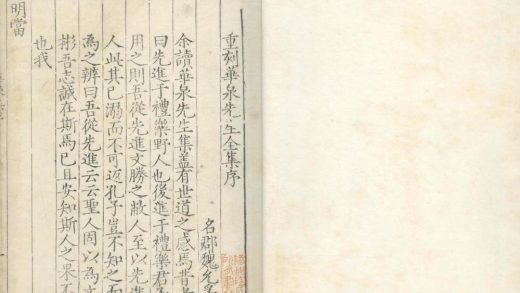 重刻華泉先生全集序
名郡魏允
余讀華泉先生集蓋有世道之感焉昔
曰先進于禮樂野人也後進于禮樂君
用之則吾從先進文勝之敝人至以先進
人此其已溺而不可返孔子豈不知之而
為之辨曰吾從先進云云聖人固以為文
彬吾志誠在斯焉已且安知斯人之果不
也我
明當